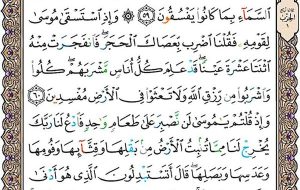 السَّمَآءِ بِمَا كَانُوا۟ يَفْسُقُونَ ٥٩ ۞ وَإِذِ ٱسْتَسْقَىٰ مُوسَىٰ
لِقَوْمِهِۦ فَقُلْنَا ٱضْرِب بِّعَصَاكَ ٱلْحَجَرَ ۖ فَٱنفَجَرَتْ مِنْهُ
ٱثْنَتَا عَشْرَةَ عَيْنًا ۖ قَدْ عَلِمَ كُلُّ أُنَاسٍ مَّشْرَبَهُمْ ۖ كُلُوا۟
وَٱشْرَبُوا۟ مِن رِّزْقِ ٱللَّهِ وَلَا تَعْثَوْا۟ فِى ٱلْأَرْضِ مُفْسِدِينَ ٦٠
وَإِذْ قُلْتُمْ يَـٰمُوسَىٰ لَن نَّصْبِرَ عَلَىٰ طَعَامٍ وَٰحِدٍ فَٱدْعُ لَنَا رَبَّكَ
يُخْرِجْ لَنَا مِمَّا تُنۢبِتُ ٱلْأَرْضُ مِنۢ بَقْلِهَا وَقِثَّآئِهَا وَفُومِهَا
وَعَدَسِهَا وَبَصَلِهَا ۖ قَالَ أَتَسْتَبْدِلُونَ ٱلَّذِى هُوَ أَدْنَىٰ